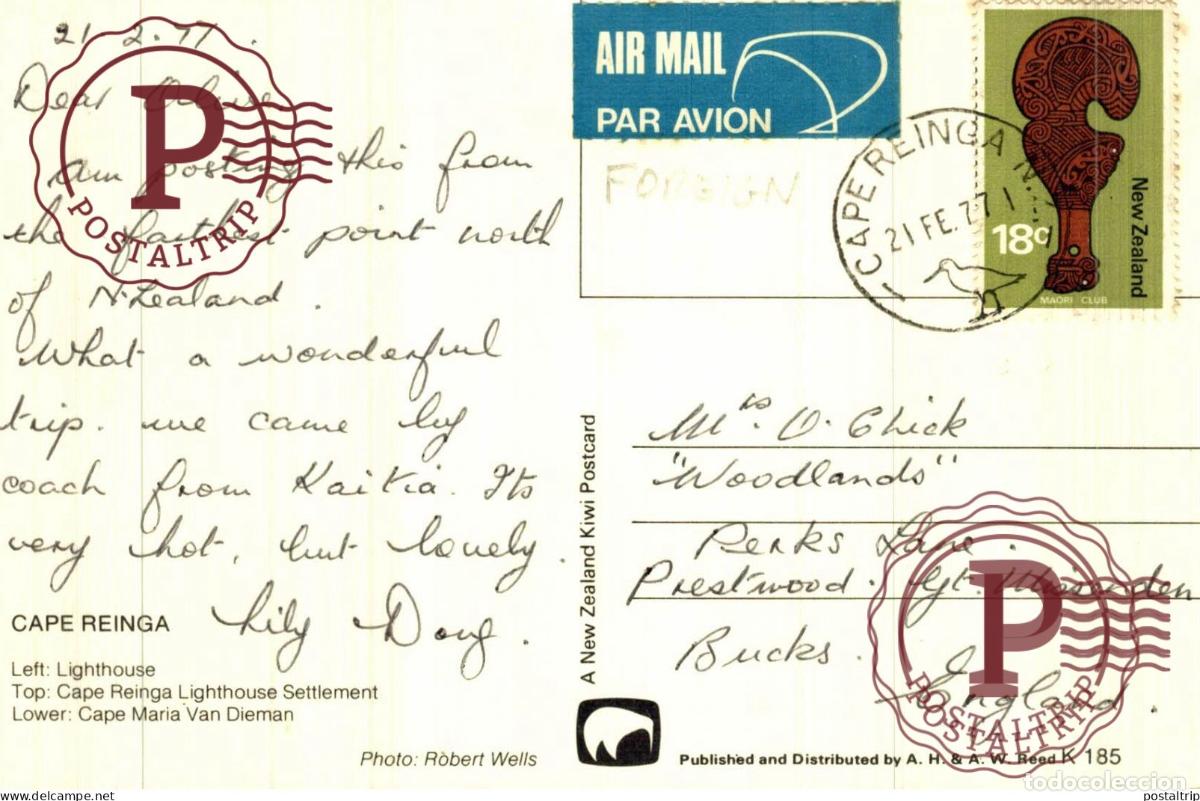 21.2.77.
Dear Olive
am posting this from
the farthest point north
of N. Zealand.
What a wonderful
trip. we came by
coach from Kaitia. Its
very hot, but lovely.
Lily Doug.
CAPE REINGA
Left: Lighthouse
Top: Cape Reinga Lighthouse Settlement
Lower: Cape Maria Van Dieman
Photo: Robert Wells
A New Zealand Kiwi Postcard
AIR MAIL
PAR AVION
FOREIGN
CAPE REINGA N.
21 FE. 77
18c
New Zealand
MAORI CLUB
Mrs. O. Chick
"Woodlands"
Perks Lane.
Prestwood. Gt. Missenden
Bucks.
England.
Published and Distributed by A. H. & A. W. Reed K 185
P
POSTALTRIP
P
POSTALTRIP
POSTALTRIP
todocoleccion
www.delcampe.net
postaltrip